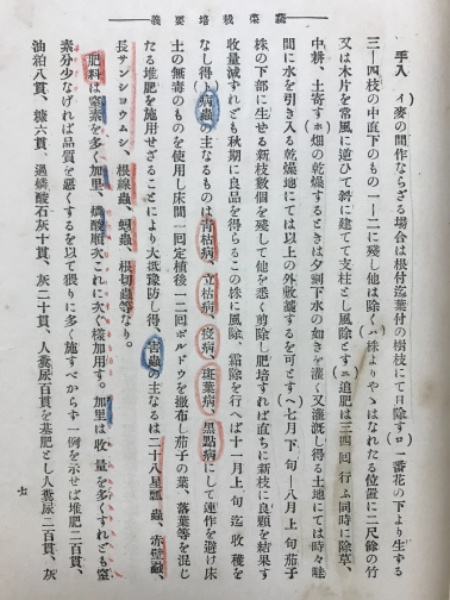 蔬菜栽培要義
手入 (イ)麥の間作ならざる場合は根付迄葉付の樹枝にて日除す(ロ)一番花の下より生ずる
三—四枝の中直下のもの一—二に殘し他は除く(ハ)株よりやゝはなれたる位置に二尺餘の竹
又は木片を常風に逆ひて斜に建てて支柱とし風除とす(ニ)追肥は三四回行ふ同時に除草、
中耕、土寄す(ホ)畑の乾燥するときは夕刻下水の如きを灌く又灌漑し得る土地にては時々畦
間に水を引き入る乾燥地にては以上の外敷藁するを可とす(ヘ)七月下旬—八月上旬茄子
株の下部に生せる新枝數個を殘して他を悉く剪除し肥培すれば直ちに新枝に良顆を結果す
收量減ずれども秋期に良品を得らるこの株に風除、霜除を行へば十一月上旬迄收穫を
なし得(ト)病蟲の主なるものは靑枯病、立枯病、疫病、斑葉病、黑點病にして連作を避け床
土の無毒のものを使用し床間一回定植後一二回ボルドウを撒布し茄子の葉、落葉等を混じ
たる堆肥を施用せざることにより大抵豫防し得、害蟲の主なるは二十八星瓢蟲、赤壁蝨、
長サンシヨウムシ、根線蟲、蚜蟲、根切蟲等なり。
肥料は窒素を多く加里、燐酸順次これに次ぐ樣加用す。加里は收量を多くすれども窒
素分少なければ品質を惡くするを以て猥りに多く施すべからず一例を示せば堆肥二百貫、
油粕八貫、糠六貫、過燐酸石灰十貫、灰二十貫、人糞尿百貫を基肥とし人糞尿二百貫、灰
七